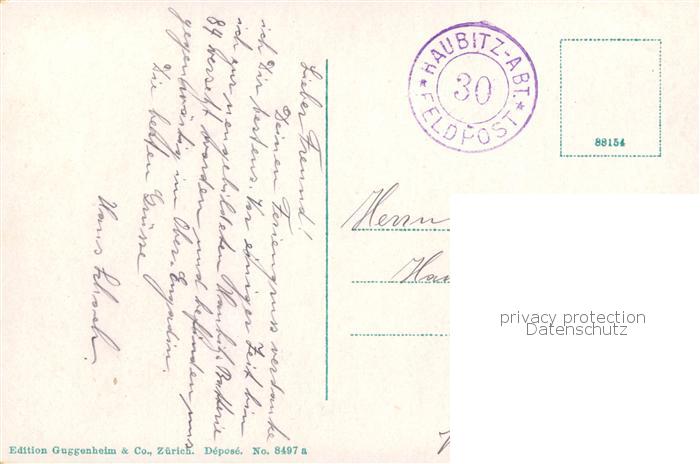 Lieber Freund!
Deinen Feriengruss verdanke
ich Dir bestens. Vor einiger Zeit bin
ich zur neugebildeten Haubitz. Batterie
84 versetzt worden und befinden uns
gegenwärtig im Ober-Engadin.
Die besten Grüsse
Hans
* HAUBITZ-ABT. *
30
FELDPOST
88154
Herrn
privacy protection
Datenschutz
Edition Guggenheim & Co., Zürich. Déposé. No. 8497 a